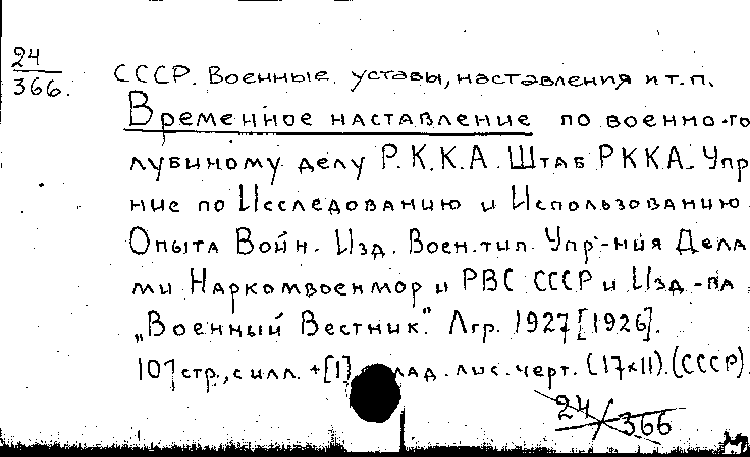 24
366.
СССР. Военные. уставы, наставления и т.п.
Временное наставление по военно-го
лубиному делу Р.К.К.А. Штаб РККА. Упр
ние по Исследованию и Использованию
Опыта Войн. Изд. Воен.тип. Упр-ния Дела
ми Наркомвоенмор и РВС СССР и Изд-ва
„Военный Вестник." Лгр. 1927 [1926].
101 стр., с илл. +[1] лис. черт. (17×11). (СССР).
24/366